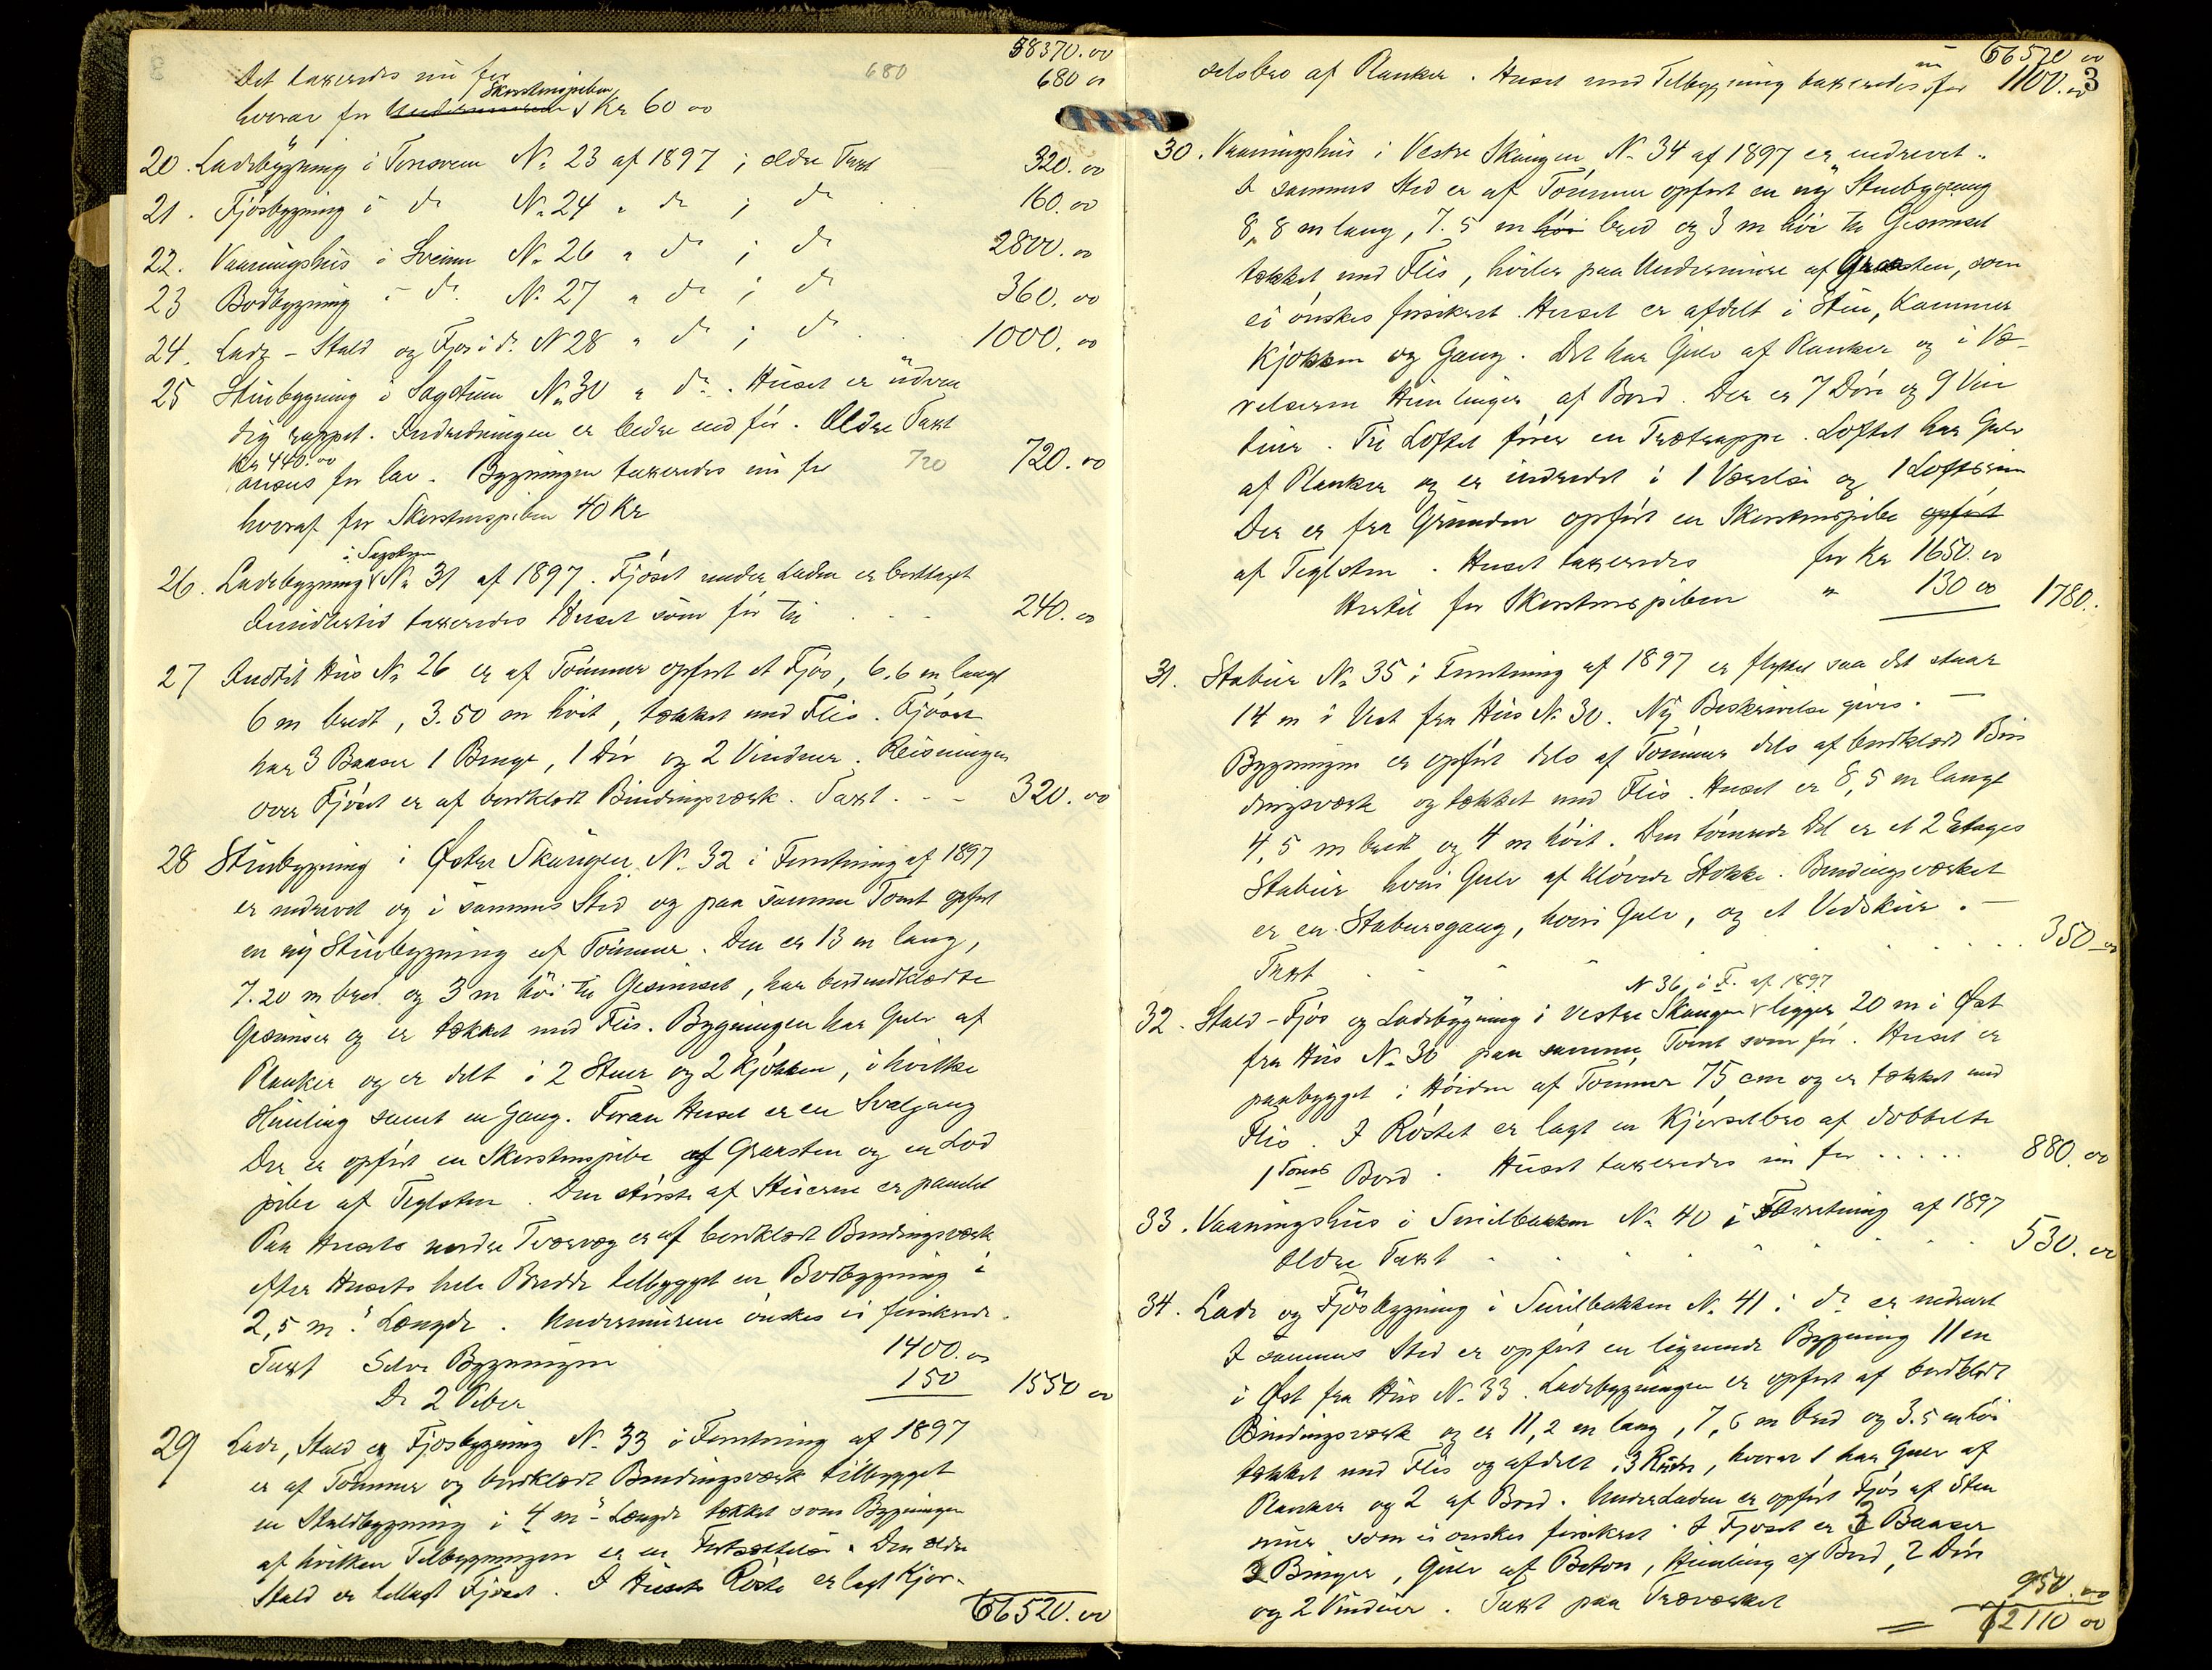 58370.00
Det taxeredes nu for 680 680 00
Skorstenspiben
hvorav for Kr 60 00
20. Ladebygning i Tonsveen No 23 af 1897 ; ældre Taxt 320.00
21. Fjøsbygning i do No 24 " do ; do 160.00
22. Vaaningshus i Sveien No 26 " do ; do 2800.00
23 Bodbygning i do. No 27 " do ; do 360.00
24. Lade - Stald og Fjøs i do. No 28 " do ; do 1000.00
25 Stuebygning i Sagstuen No 30 " do. Huset er udven
dig rappet. Indredningen er bedre end før. Ældre Taxt
Kr 440.00
ansees for lav. Bygningen taxeredes nu for 720 720.00
hvoraf for Skorstenspiben 40 Kr
i Sagstuen
26. Ladebygning No 31 af 1897. Fjøset under Laden er borttaget
Imidlertid taxeredes Huset som før til 240.00
27 Indtil Hus No 26 er af Tømmer opført et Fjøs, 6.6 m langt
6 m bredt, 3.50 m høit, tækket med Flis. Fjøset
har 3 Baaser 1 Binge, 1 Dør og 2 Vinduer. Reisningen
over Fjøset er af bordklædt Bindingsværk. Taxt. - - 320.00
28 Stuebygning i Østre Skaugen No. 32 i Forretning af 1897
er nedrevet og i sammes Sted og paa samme Tomt opført
en ny Stuebygning af Tømmer. Den er 13 m lang,
7.20 m bred og 3 m høi til Gesimset, har bordindklædte
Gesimser og er tækket med Flis. Bygningen har Gulv af
Planker og er delt i 2 Stuer og 2 Kjøkken, i hvilke
Himling samt en Gang. Foran Huset er en Svalgang
Der er opført en Skorstenspibe af Graasten og en Lod
pibe af Teglsten. Den største af Stuerne er panelet
Paa Husets nordre Tværvæg er af bordklædt Bindingsværk
efter Husets hele Bredde tilbygget en Bodbygning i
2,5 m. Længde. Undermurene ønskes ei forsikrede.
Taxt Selve Bygningen 1400.00
De 2 Piber 150 1550 00
29 Lade, Stald og Fjøsbygning No. 33 i Forretning af 1897
er af Tømmer og bordklædt Bindingsværk tilbygget
en Staldbygning i 4 m Længde tækket som Bygningen
af hvilken Tilbygningen er en Fortsættelse. Den ældre
Stald er tillagt Fjøset. I Husets Røste er lagt Kjør-
66520.00
66520 00
3
selsbro af Planker. Huset med Tilbygning taxeredes nu for 1100.00
30. Vaaningshus i Vestre Skaugen No. 34 af 1897 er nedrevet.
I sammes Sted er af Tømmer opført en ny Stuebygning
8,8 m lang, 7.5 m høi bred og 3 m høi til Gesimset
tækket med Flis, hviler paa Undermure af Graasten, som
ei ønskes forsikret. Huset er afdelt i Stue, Kammer
Kjøkken og Gang. Det har Gulv af Planker og i Væ-
relserne Himlinger af Bord. Der er 7 Døre og 9 Vin
duer. Til Loftet fører en Trætrappe. Loftet har Gulv
af Planker og er indredet i 1 Værelse og 1 Loftsrum
Der er fra Grunden opført en Skorstenspibe opført
af Teglsten. Huset taxeredes for Kr 1650.00
Hertil for Skorstenspiben " 130 00 1780.
31. Stabur No 35 i Forretning af 1897 er flyttet saa det staar
14 m i Vest fra Hus No. 30. Ny Beskrivelse gives.
Bygningen er opført dels af Tømmer dels af bordklædt Bin
dingsværk og tækket med Flis. Huset er 8,5 m langt
4,5 m bredt og 4 m høit. Den tømrede Del er et 2 Etages
Stabur hvori Gulv af kløvede Stokke. Bindingsværket
er en Stabursgang, hvori Gulv, og et Vedskur.
Taxt 350.00
N 36 i F. af 1897
32. Stald - Fjøs og Ladebygning i Vestre Skaugen ligger 20 m i Øst
fra Hus No. 30 paa samme Tomt som før. Huset er
paabygget i Høiden af Tømmer 75 cm og er tækket med
Flis. I Røstet er lagt en Kjørselbro af dobbelte
1 Toms Bord. Huset taxeredes nu for ..... 880.00
33. Vaaningshus i Smedbakken No 40 i Forretning af 1897
Ældre Taxt 530.00
34. Lade og Fjøsbygning i Smedbakken No. 41 i do er nedrevet
I sammes Sted er opført en lignende Bygning 11 m
i Øst fra Hus No. 33. Ladebygningen er opført af bordklædt
Bindingsværk og er 11,2 m lang, 7,6 m bred og 3.5 m høi
tækket med Flis og afdelt i 3 Rum, hvorav 1 har Gulv af
Planker og 2 af Bord. Under Laden er opført Fjøs af Sten
mur som ei ønskes forsikret. I Fjøset er 3 Baaser
2 Binger, Gulv af Beton, Himling af Bord, 2 Døre
og 2 Vinduer. Taxt paa Træværket 950.00
62110 00